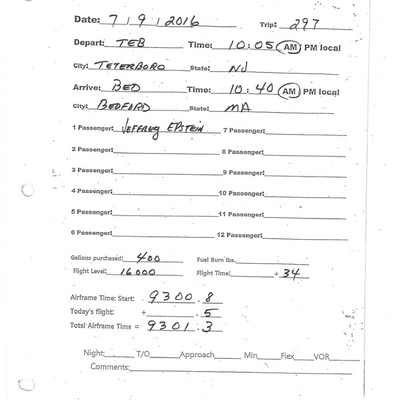 Date: 7 / 9 / 2016 Trip: 297
Depart: TEB Time: 10:05 AM PM local
City: TETERBORO State: NJ
Arrive: BED Time: 10:40 AM PM local
City: BEDFORD State: MA
1 Passenger: JEFFREY EPSTEIN 7 Passenger:
2 Passenger: 8 Passenger:
3 Passenger: 9 Passenger:
4 Passenger: 10 Passenger:
5 Passenger: 11 Passenger:
6 Passenger: 12 Passenger:
Gallons purchased: 400 Fuel Burn lbs.
Flight Level: 16000 Flight Time: + 34
Airframe Time: Start: 9300.8
Today's flight: + .5
Total Airframe Time = 9301.3
Night: T/O Approach Min Flex VOR
Comments: